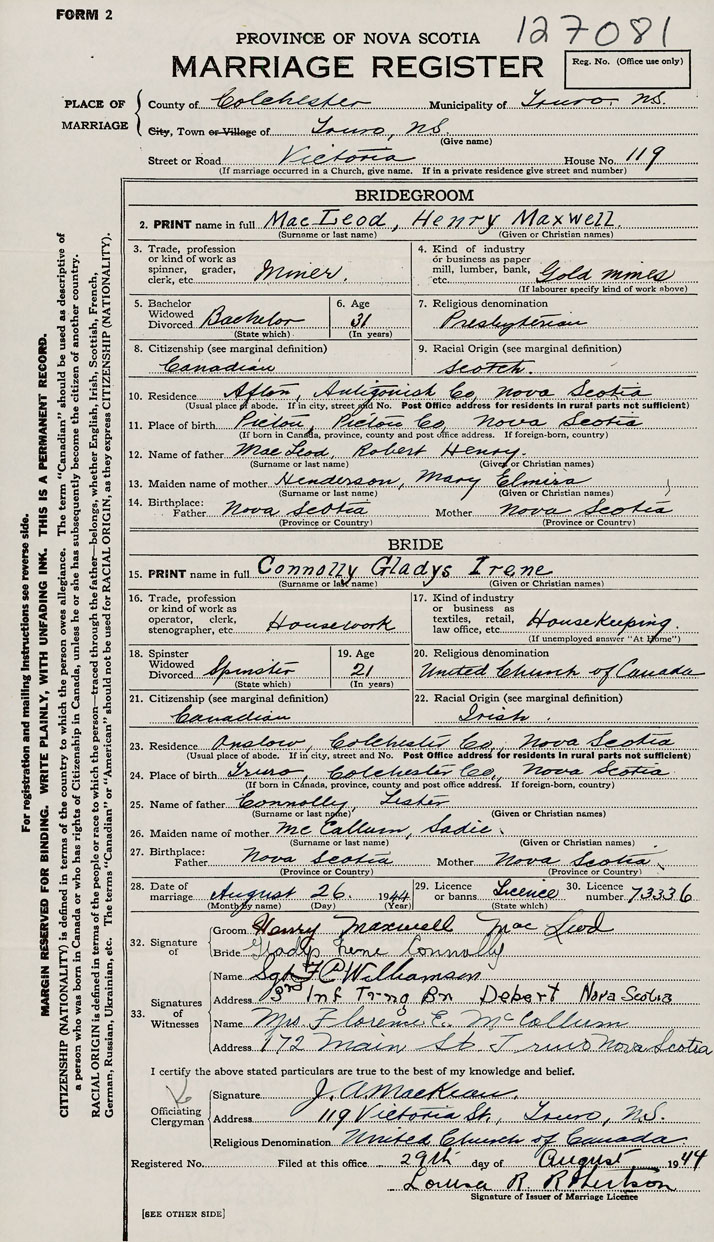 FORM 2
127081
PROVINCE OF NOVA SCOTIA
MARRIAGE REGISTER
Reg. No. (Office use only)
PLACE OF MARRIAGE
County of Colchester Municipality of Truro. N.S.
City, Town or Village of Truro, N.S.
(Give name)
Street or Road Victoria House No. 119
(If marriage occurred in a Church, give name. If in a private residence give street and number)
BRIDEGROOM
2. PRINT name in full MacLeod, Henry Maxwell.
(Surname or last name) (Given or Christian names)
3. Trade, profession or kind of work as spinner, grader, clerk, etc. Miner.
4. Kind of industry or business as paper mill, lumber, bank, etc. Gold mines
(If labourer specify kind of work above)
5. Bachelor Widowed Divorced Bachelor
(State which)
6. Age 31
(In years)
7. Religious denomination
Presbyterian
8. Citizenship (see marginal definition)
Canadian
9. Racial Origin (see marginal definition)
Scotch.
10. Residence Afton, Antigonish Co, Nova Scotia
(Usual place of abode. If in city, street and No. Post Office address for residents in rural parts not sufficient)
11. Place of birth Pictou, Pictou Co, Nova Scotia
(If born in Canada, province, county and post office address. If foreign-born, country)
12. Name of father MacLeod, Robert Henry.
(Surname or last name) (Given or Christian names)
13. Maiden name of mother Henderson, Mary Elmira
(Surname or last name) (Given or Christian names)
14. Birthplace: Father Nova Scotia Mother Nova Scotia
(Province or Country) (Province or Country)
BRIDE
15. PRINT name in full Connolly Gladys Irene
(Surname or last name) (Given or Christian names)
16. Trade, profession or kind of work as operator, clerk, stenographer, etc. Housework
17. Kind of industry or business as textiles, retail, law office, etc. Housekeeping.
(If unemployed answer "At Home")
18. Spinster Widowed Divorced Spinster
(State which)
19. Age 21
(In years)
20. Religious denomination
United Church of Canada
21. Citizenship (see marginal definition)
Canadian
22. Racial Origin (see marginal definition)
Irish.
23. Residence Onslow, Colchester Co, Nova Scotia
(Usual place of abode. If in city, street and No. Post Office address for residents in rural parts not sufficient)
24. Place of birth Truro, Colchester Co, Nova Scotia
(If born in Canada, province, county and post office address. If foreign-born, country)
25. Name of father Connolly, Lester
(Surname or last name) (Given or Christian names)
26. Maiden name of mother McCallum, Sadie
(Surname or last name) (Given or Christian names)
27. Birthplace: Father Nova Scotia Mother Nova Scotia
(Province or Country) (Province or Country)
28. Date of marriage August 26. 1944
(Month by name) (Day) (Year)
29. Licence or banns Licence
(State which)
30. Licence number 73336
32. Signature of
Groom Henry Maxwell MacLeod
Bride Gladys Irene Connolly
33. Signatures of Witnesses
Name Sgt F C Williamson
Address 3rd Inf Trng Bn Debert Nova Scotia
Name Mrs. Florence E. McCallum
Address 172 Main St. Truro Nova Scotia
I certify the above stated particulars are true to the best of my knowledge and belief.
Officiating Clergyman
Signature J. A. MacKean.
Address 119 Victoria St., Truro, N.S.
Religious Denomination United Church of Canada
Registered No. Filed at this office 29th day of August 1944
Louisa R. Robertson
Signature of Issuer of Marriage Licence
[SEE OTHER SIDE]
For registration and mailing instructions see reverse side.
MARGIN RESERVED FOR BINDING. WRITE PLAINLY, WITH UNFADING INK. THIS IS A PERMANENT RECORD.
CITIZENSHIP (NATIONALITY) is defined in terms of the country to which the person owes allegiance. The term "Canadian" should be used as descriptive of
a person who was born in Canada or who has rights of Citizenship in Canada, unless he or she has subsequently become the citizen of another country.
RACIAL ORIGIN is defined in terms of the people or race to which the person—traced through the father—belongs, whether English, Irish, Scottish, French,
German, Russian, Ukrainian, etc. The terms "Canadian" or "American" should not be used for RACIAL ORIGIN, as they express CITIZENSHIP (NATIONALITY).